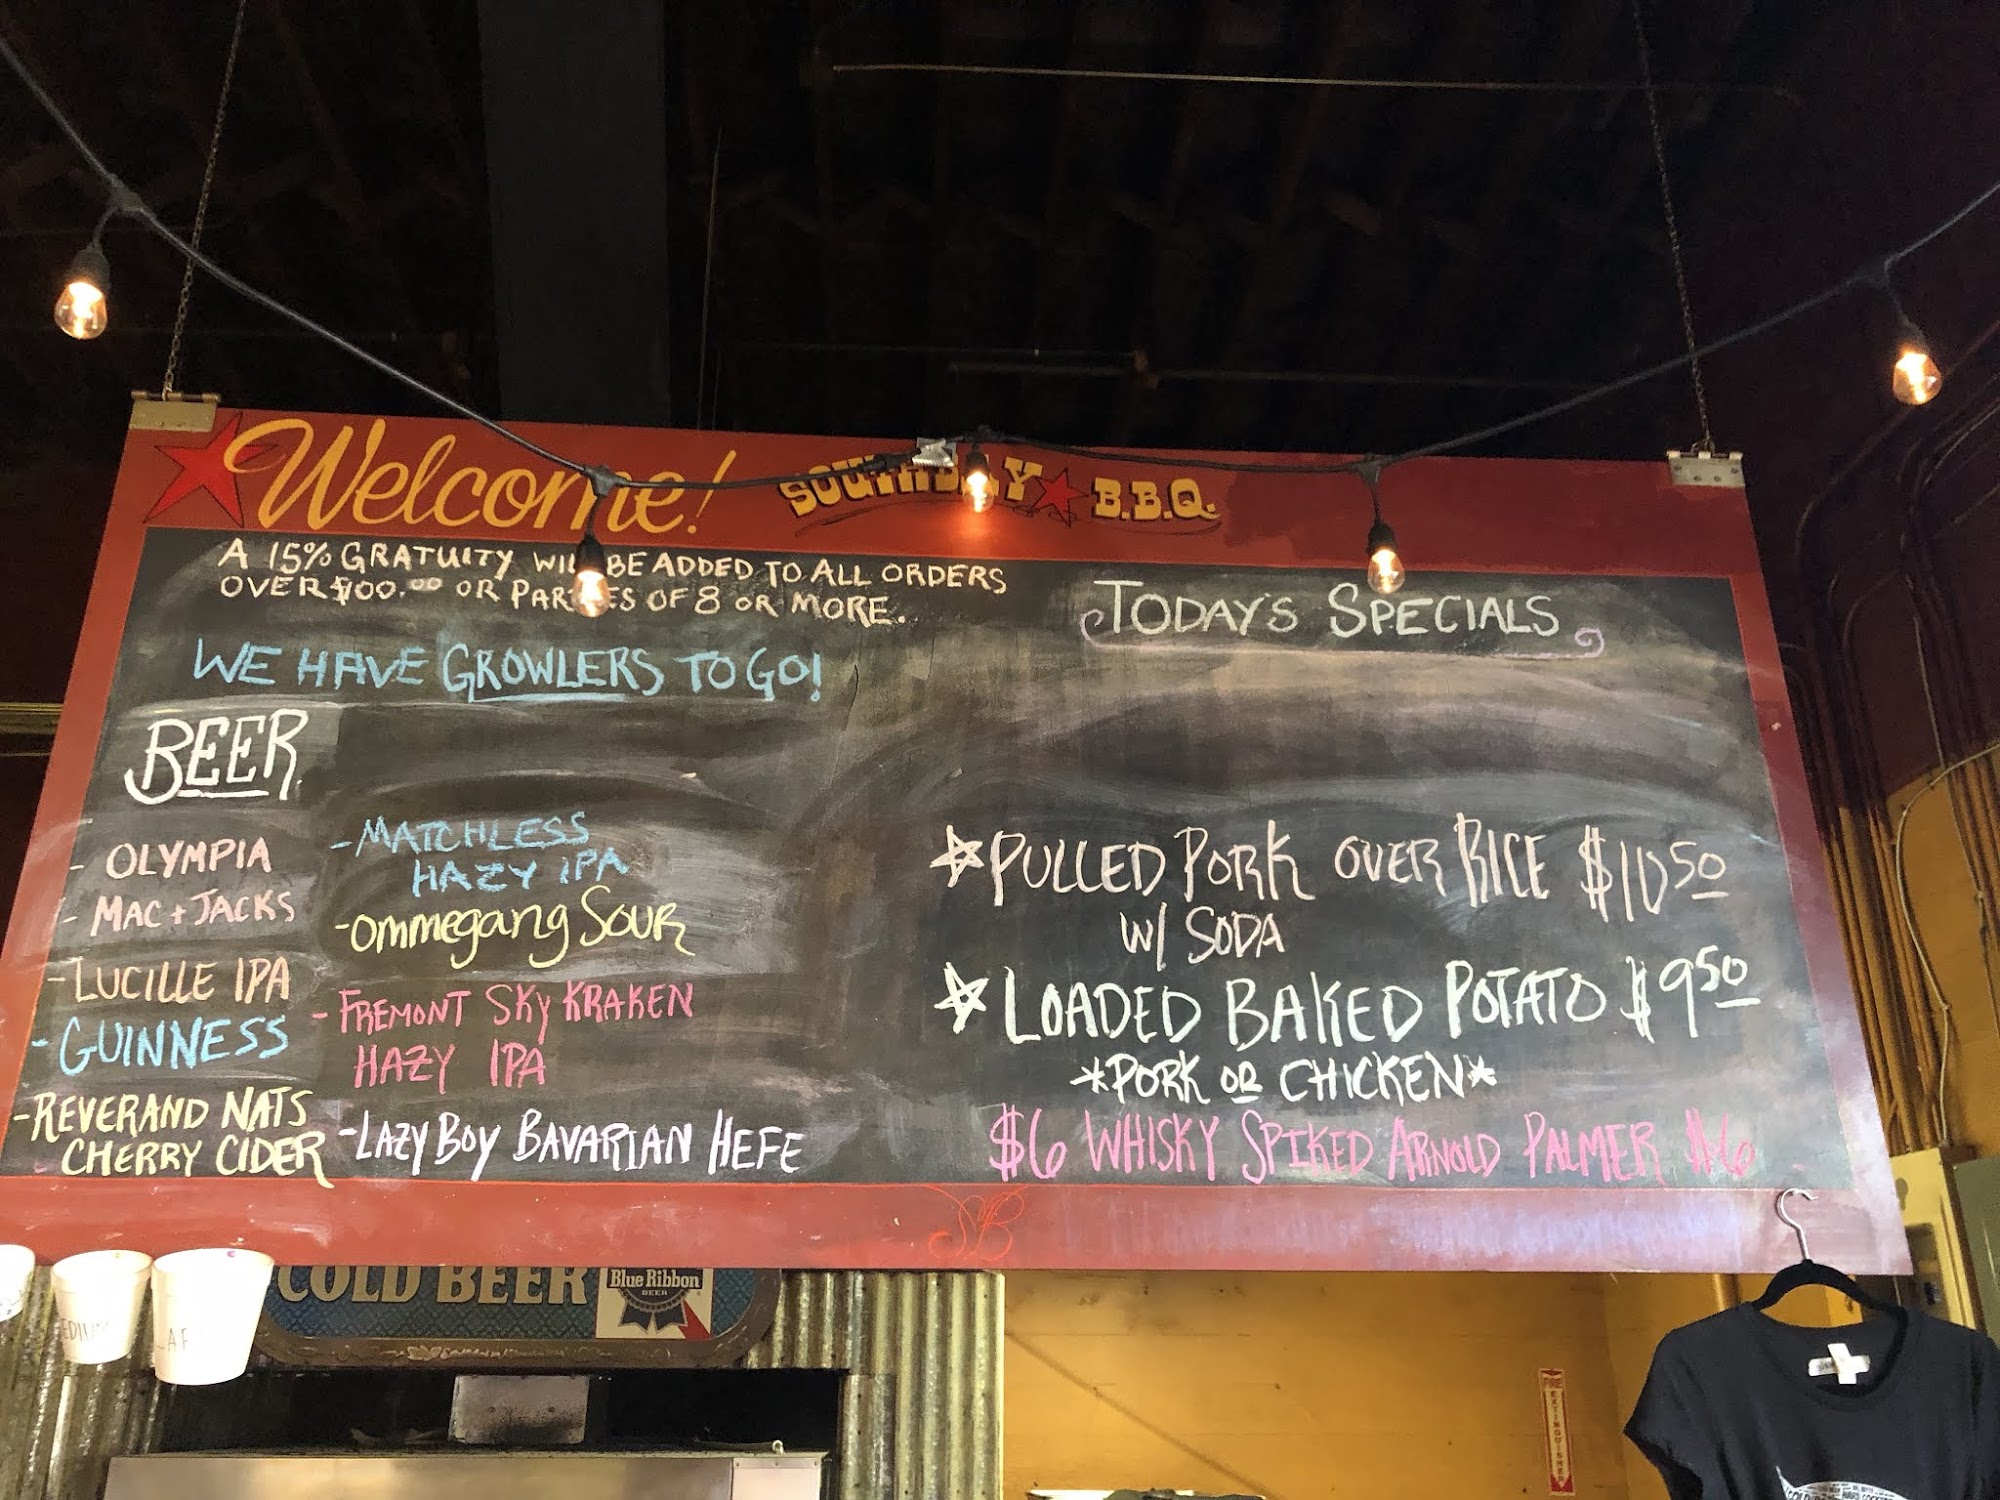 Welcome! SOUTHBAY B.B.Q.
A 15% GRATUITY WILL BE ADDED TO ALL ORDERS
OVER $100.00 OR PARTIES OF 8 OR MORE.
WE HAVE GROWLERS TO GO!
BEER
- OLYMPIA
- MAC + JACKS
- LUCILLE IPA
- GUINNESS
- REVERAND NATS
CHERRY CIDER
- MATCHLESS
HAZY IPA
- Ommegang Sour
- FREMONT SKY KRAKEN
HAZY IPA
- LAZY BOY BAVARIAN HEFE
TODAY'S SPECIALS
PULLED PORK OVER RICE $10 50
W/ SODA
LOADED BAKED POTATO $9 50
*PORK OR CHICKEN*
$6 WHISKY SPIKED ARNOLD PALMER $6
SB
COLD BEER
Blue Ribbon
BEER
FIRE EXTINGUISHER